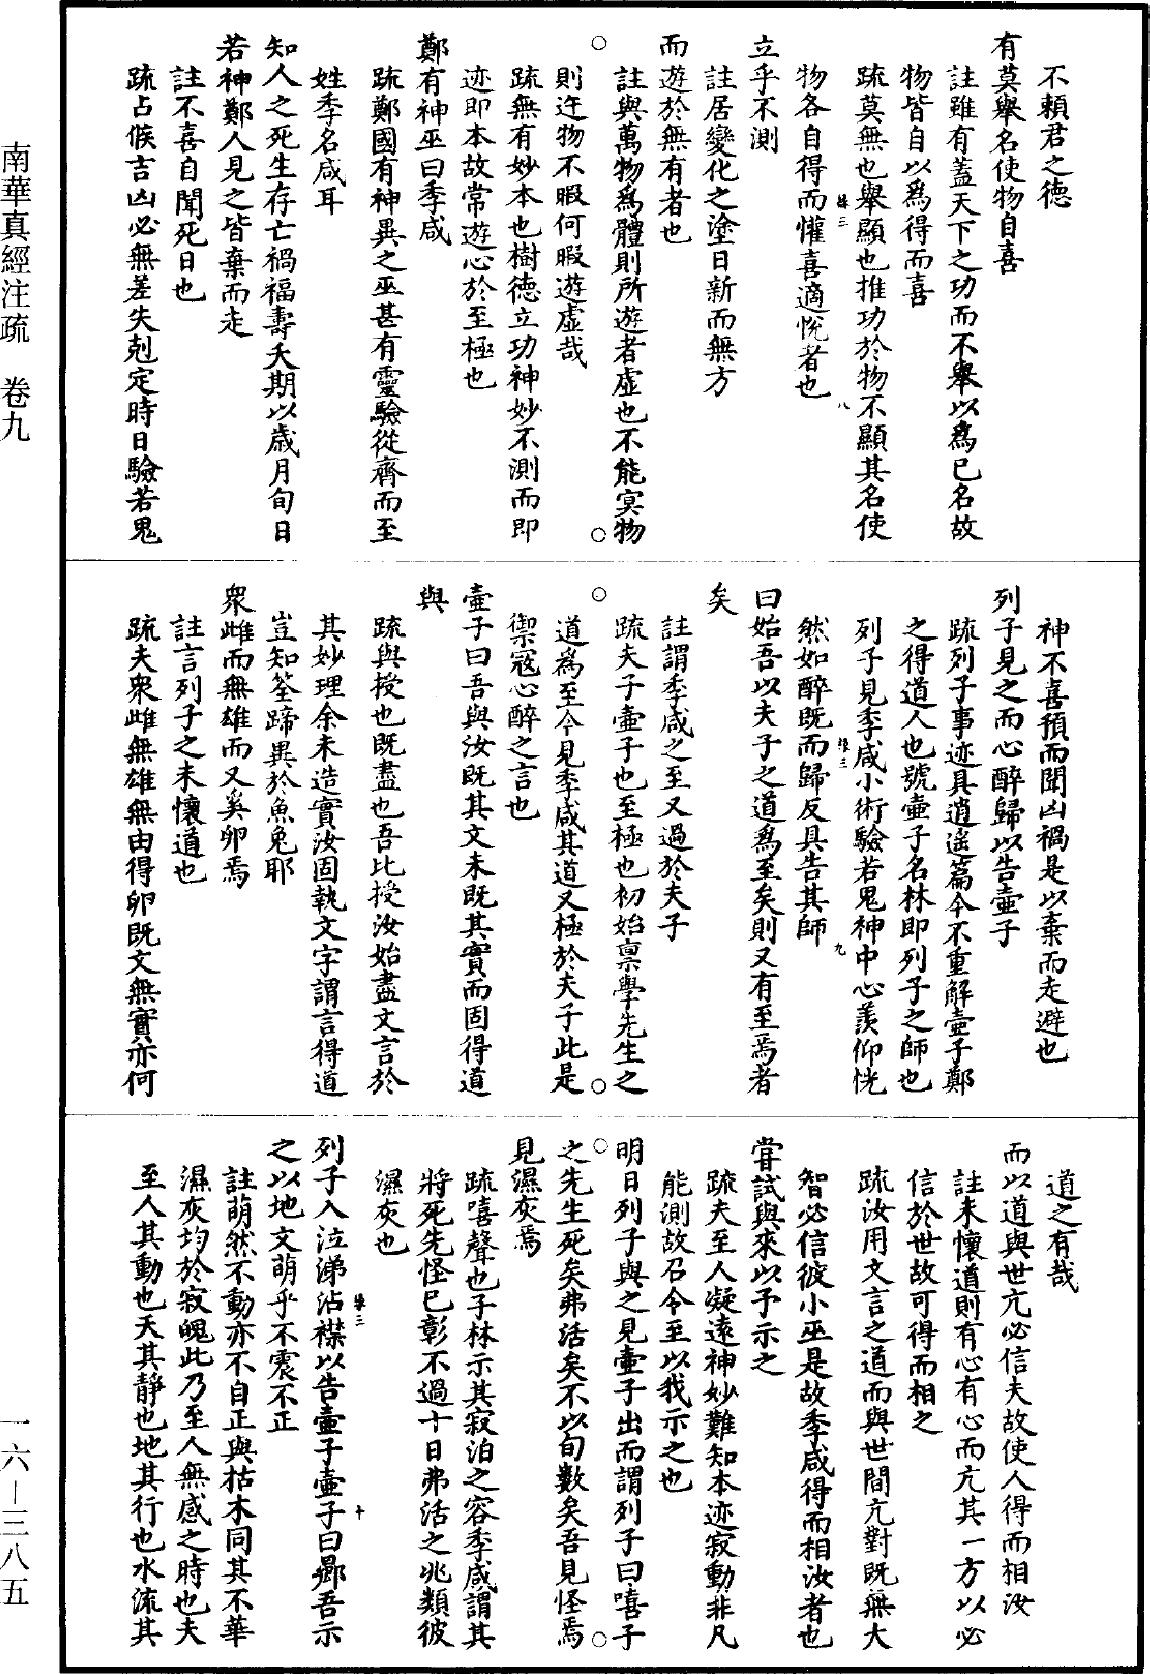 不賴君之德
有莫舉名使物自喜
註雖有蓋天下之功而不舉以爲已名故
物皆自以爲得而喜
疏莫無也舉顯也推功於物不顯其名使
物各自得而懽喜適悅者也
立乎不測
註居變化之塗日新而無方
而遊於無有者也
註與萬物爲體則所遊者虛也不能冥物
則迕物不暇何暇遊虛哉
疏無有妙本也樹德立功神妙不測而即
迹即本故常遊心於至極也
鄭有神巫曰季咸
疏鄭國有神異之巫甚有靈驗從齊而至
姓季名咸耳
知人之死生存亡禍福壽夭期以歲月旬日
若神鄭人見之皆棄而走
註不喜自聞死日也
疏占候吉凶必無差失剋定時日驗若鬼
神不喜預而聞凶禍是以棄而走避也
列子見之而心醉歸以告壺子
疏列子事迹具逍遙篇今不重解壺子鄭
之得道人也號壺子名林即列子之師也
列子見季咸小術驗若鬼神中心羨仰恍
然如醉既而歸反具告其師
曰始吾以夫子之道爲至矣則又有至焉者
矣
註謂季咸之至又過於夫子
疏夫子壺子也至極也初始稟學先生之
道爲至今見季咸其道又極於夫子此是
禦寇心醉之言也
壺子曰吾與汝既其文未既其實而固得道
與
疏與授也既盡也吾比授汝始盡文言於
其妙理余未造實汝固執文字謂言得道
豈知筌蹄異於魚兔耶
衆雌而無雄而又奚卵焉
註言列子之未懷道也
疏夫衆雌無雄無由得卵既文無實亦何
道之有哉
而以道與世亢必信夫故使人得而相汝
註未懷道則有心有心而亢其一方以必
信於世故可得而相之
疏汝用文言之道而與世間亢對既無大
智必信彼小巫是故季咸得而相汝者也
甞試與來以予示之
疏夫至人凝遠神妙難知本迹寂動非凡
能測故召令至以我示之也
明日列子與之見壺子出而謂列子曰嘻子
之先生死矣弗活矣不以旬數矣吾見怪焉
見濕灰焉
疏嘻聲也子林示其寂泊之容季咸謂其
將死先怪已彰不過十日弗活之兆類彼
濕灰也
列子入泣涕沾襟以告壺子壺子曰鄉吾示
之以地文萌乎不震不正
註萌然不動亦不自正與枯木同其不華
濕灰均於寂魄此乃至人無感之時也夫
至人其動也天其靜也地其行也水流其
南華真經注疏　卷九
一六—三八五